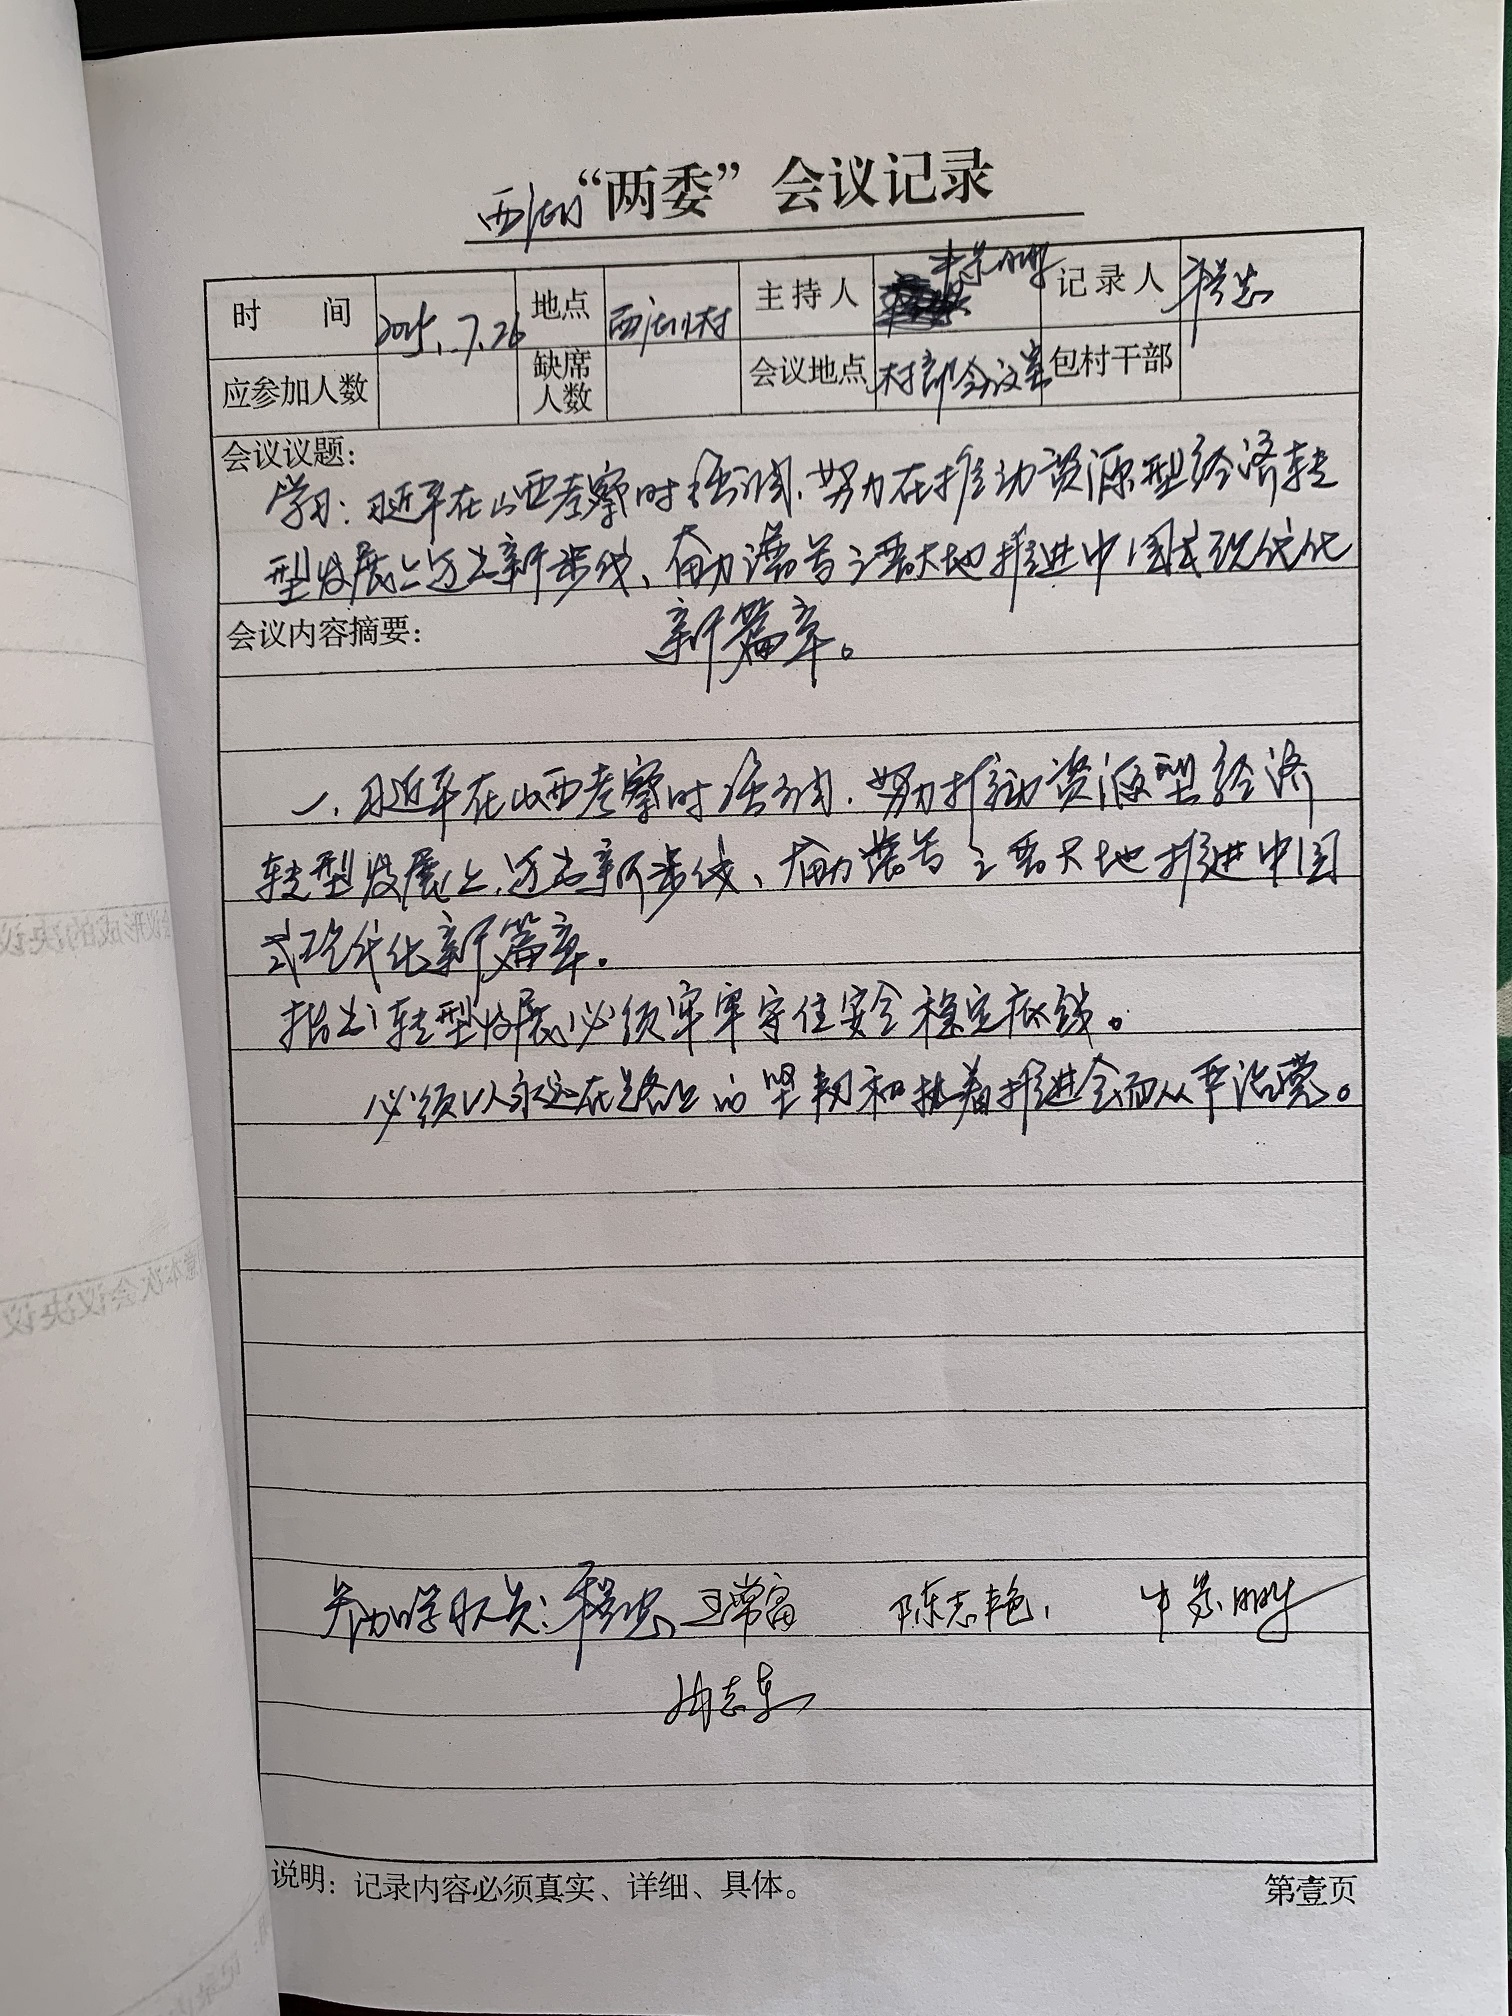 西湖“两委”会议记录
时 间 2025.7.26 地点 西湖村 主持人 记录人
应参加人数 缺席人数 会议地点 村部会议室 包村干部
会议议题:
学习:习近平在山西考察时强调,努力在推动资源型经济转
型发展上迈出新步伐、奋力谱写三晋大地推进中国式现代化
会议内容摘要: 新篇章。
一、习近平在山西考察时强调,努力推动资源型经济
转型发展上,迈出新步伐、奋力谱写三晋大地推进中国
式现代化新篇章。
指出:转型发展必须牢牢守住安全稳定底线。
必须以永远在路上的坚韧和执着推进全面从严治党。
参加学习人员: 王常富 陈志艳 
志东
说明:记录内容必须真实、详细、具体。 第壹页